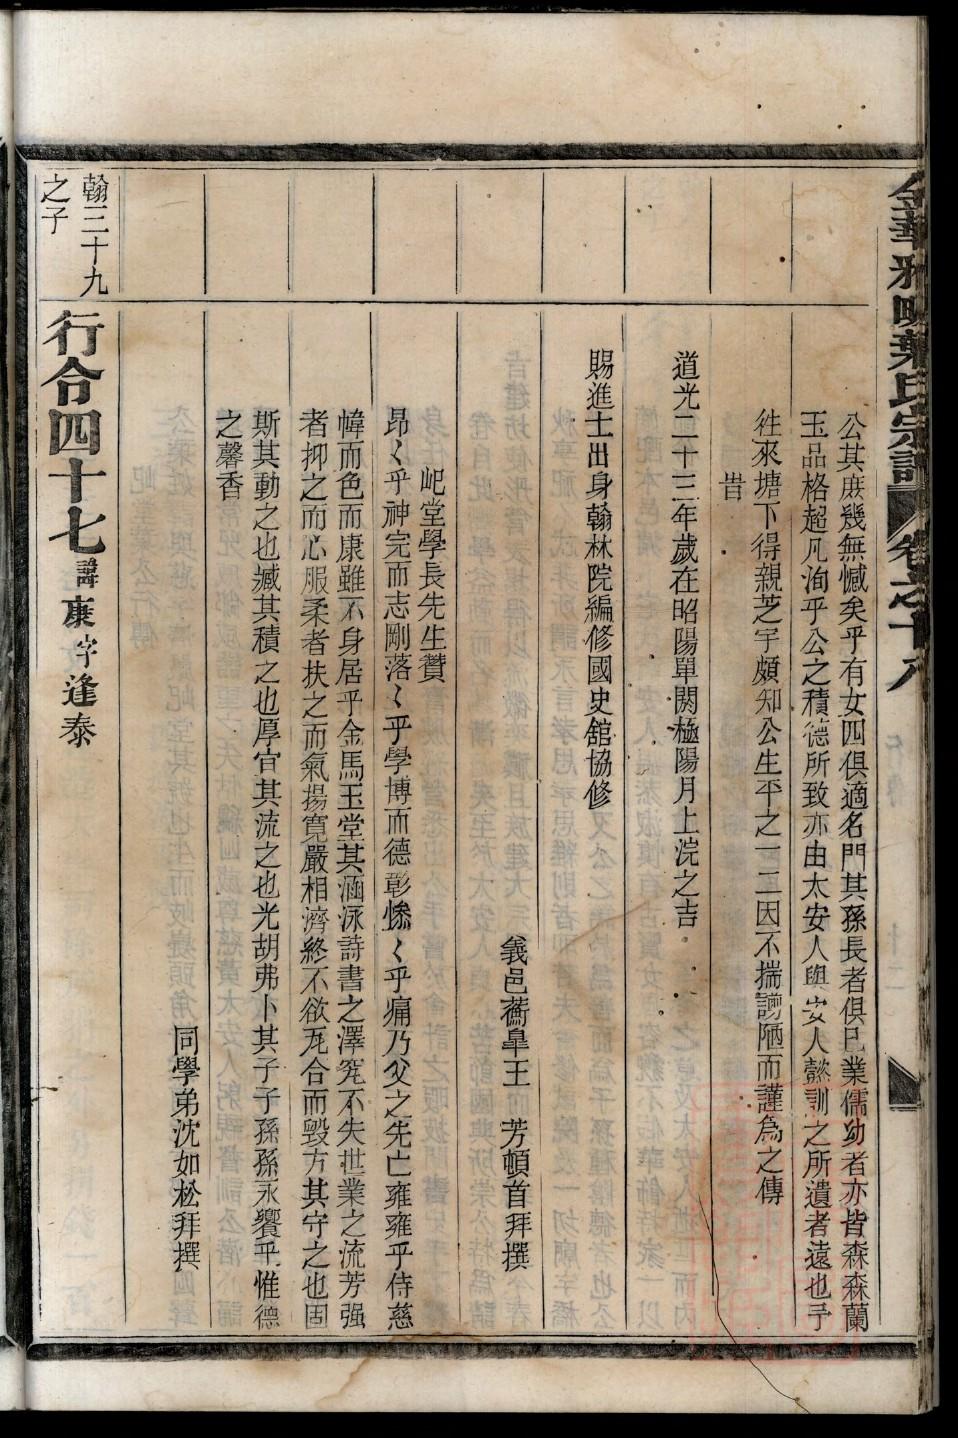 公其庶幾無憾矣乎有女四俱適名門其孫長者俱已業儒幼者亦皆森森蘭
玉品格超凡洵乎公之積德所致亦由太安人與安人懿訓之所遺者遠也予
往來塘下得親芝宇頗知公生平之一二因不揣譾陋而謹為之傳
旹
道光二十三年歲在昭陽單閼極陽月上浣之吉
賜進士出身翰林院編修國史舘協修
義邑蘅臯王 芳頓首拜撰
屺堂學長先生贊
昂〻乎神完而志剛落〻乎學博而德彰慘〻乎痛乃父之先亡雍雍乎侍慈
幃而色而康雖不身居乎金馬玉堂其涵泳詩書之澤究不失世業之流芳强
者抑之而心服柔者扶之而氣揚寬嚴相濟終不欲瓦合而毀方其守之也固
斯其動之也臧其積之也厚宜其流之也光胡弗卜其子子孫孫永饗乎惟德
之馨香
同學弟沈如松拜撰
翰三十九
之子
行合四十七諱康字逢泰